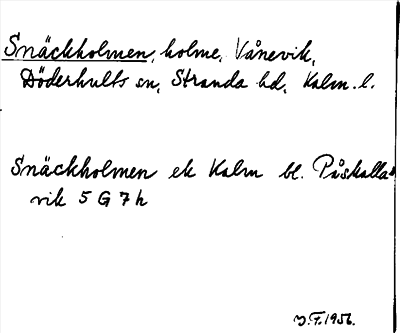 Snäckholmen, holme, Vånevik,
Döderhults sn, Stranda hd, Kalm. l.
Snäckholmen ek Kalm bl. Påskalla-
vik 5 G 7 h
J.F. 1956.